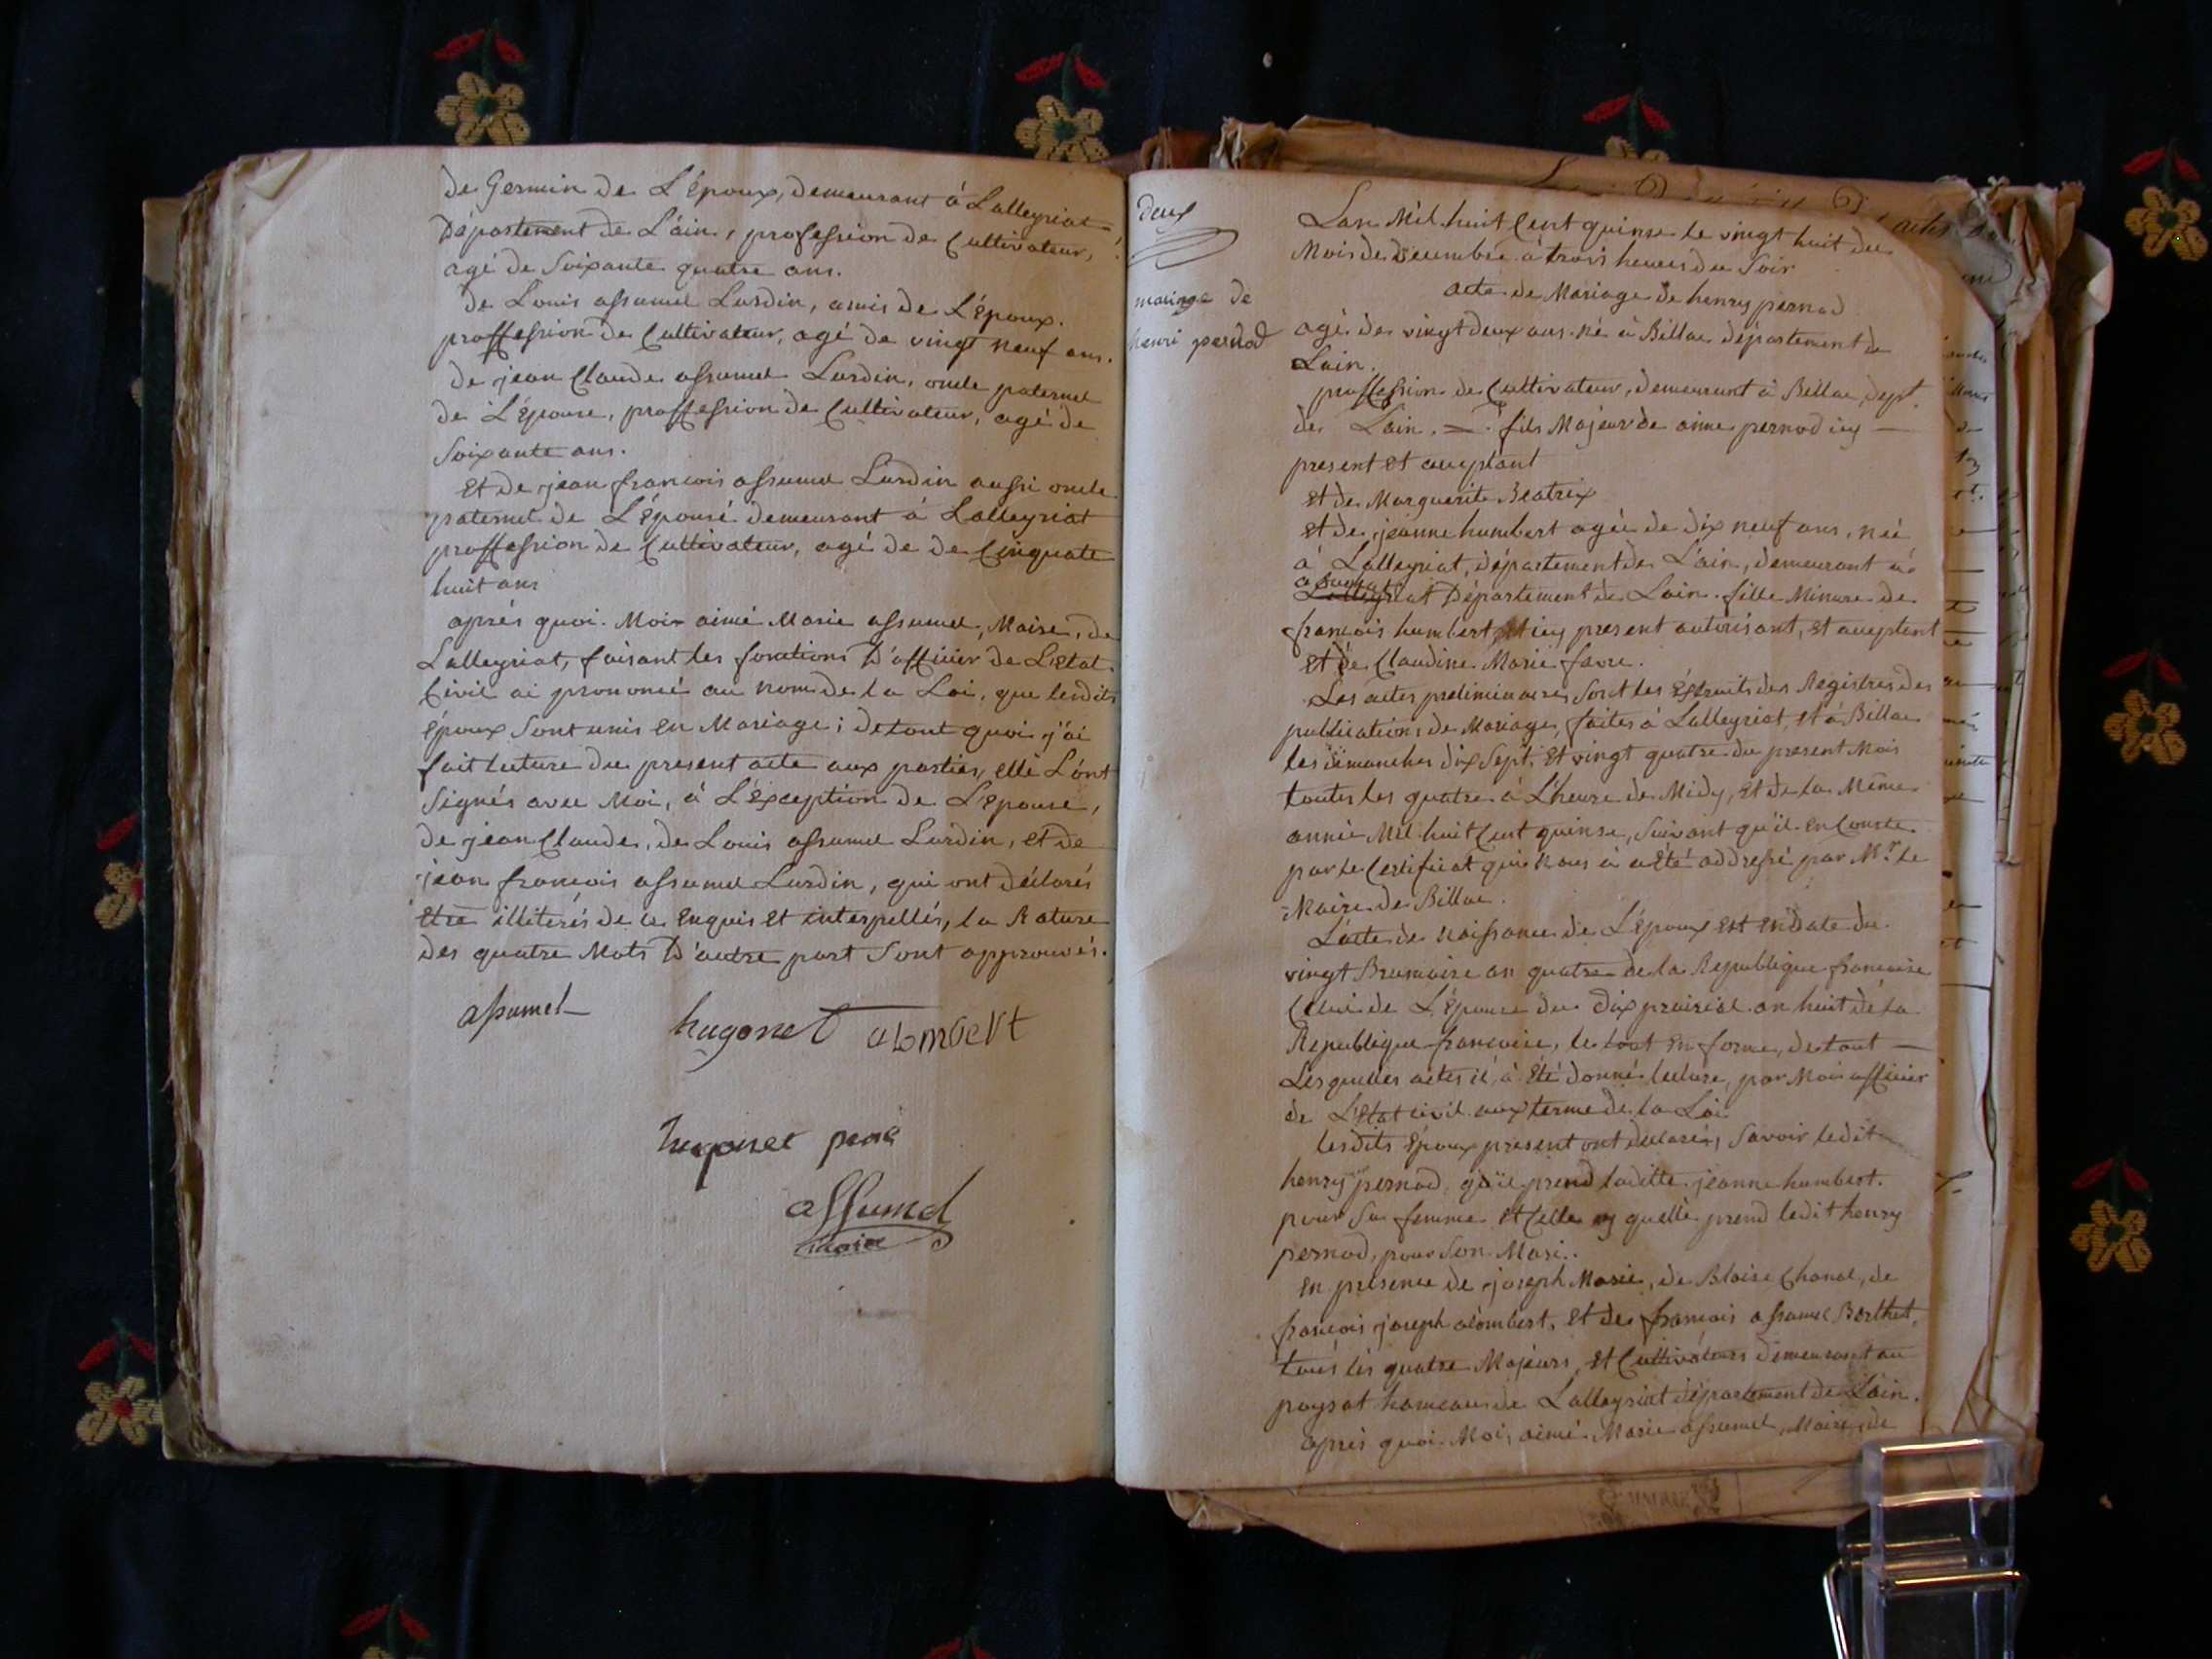 de Germin de L'Epoux, demeurant à Lalleyriat
Département de L'ain, profession de Cultivateur,
agé de Soixante quatre ans.
de Louis assumel Lardin, amis de L'Epoux.
proffession de Cultivateur, agé de vingt neuf ans.
de jean Claude assumel Lardin, oncle paternel
de L'épouse, proffession de Cultivateur, agé de
Soixante ans.
Et de jean francois assumel Lardin aussi oncle
paternel de L'Epousé demeurant à Lalleyriat
proffession de Cultivateur, agé de de Cinquate
huit ans
aprés quoi. Moi aimé Marie assumel, Maire, de
Lalleyriat, faisant les fonctions D'officier de L'Etat
Civil ai prononcé au nom de la Loi, que lesdits
époux Sont unis en Mariage; de tout quoi j'ai
fait lecture du present acte aux parties, elle L'ont
Signés avec Moi, à L'Exception de L'Epouse,
de jean Claude, de Louis assumel Lardin, et de
jean francois assumel Lardin, qui ont déclarés
Etre illiterés de ce Enquis et interpellés, la Rature
des quatre Mots D'autre part Sont approuvés.
assumel hugonet alombert
hugonet
assumel
maire
deux
mariage de
henri pernod
Lan Mil huit Cent quinse le vingt huit du
Mois de Decembre à trois heures du Soir
acte de Mariage de henry pernod
agé de vingt deux ans. né à Billac département de
Lain.
proffession de Cultivateur, demeurant à Bellac, dept.
de Lain. fils Majeur de aime pernod icy
present et aceptant
Et de Marguerite Beatrix
et de jeanne humbert agée de dix neuf ans, née
à Lalleyriat, département de L'ain, demeurant à
Lalleyriat Département de Lain. fille Minure de
francois humbert icy present autorisant, et aceptent
et de Claudine Marie favre.
Les actes preliminaires Sont les Extraits des Registres des
publications de Mariage, faites à Lalleyriat, et à Billac
les dimanches dix Sept, et vingt quatre du present Mois
toutes les quatre à L'heure de Midy, et de la Même
année Mil huit Cent quinse, Suivant qu'il en Conste
par le Certificat qui Nous à eté addressé par Mr. le
Maire de Billac.
L'acte de Naissance de L'Epoux est en Date du
vingt Brumaire an quatre de la Republique francaise
Celui de L'Epouse du dix prairial an huit de la
Republique francaise, le tout en forme, de tout
Lesquelles actes il à été donné lecture, par Moi officier
de L'Etat civil aux terme de la Loi
lesdits époux present ont declarés, Savoir ledit
henry pernod, qu'il prend laditte jeanne humbert.
pour Sa femme et Celle cy quelle prend ledit henry
pernod, pour Son Mari.
En presence de joseph Marie, de Blaise Chanal, de
francois joseph alombert, et de francois assumel Berthet,
tous les quatre Majeurs, et Cultivateurs demeurant au
poysat hameau de Lalleyriat département de L'ain.
aprés quoi Moi, aimé Marie assumel, Maire, de